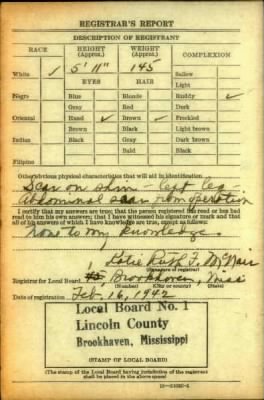 REGISTRAR'S REPORT
DESCRIPTION OF REGISTRANT
RACE HEIGHT (Approx.) WEIGHT (Approx.) COMPLEXION
5' 11" 145
White ✓ EYES HAIR Sallow
Light
Negro Blue Blonde Ruddy ✓
Gray Red Dark
Oriental Hazel ✓ Brown ✓ Freckled
Brown Black Light brown
Indian Black Gray Dark brown
Bald Black
Filipino
Other obvious physical characteristics that will aid in identification
Scar on shin - left leg
Abdominal scar from operation
I certify that my answers are true; that the person registered has read or has had read to him his own answers; that I have witnessed his signature or mark and that all of his answers of which I have knowledge are true, except as follows:
None to my knowledge.
Ruth F. McNair
(Signature of registrar)
Registrar for Local Board Brookhaven, Miss
(Number) (City or county) (State)
Date of registration Feb. 16, 1942
Local Board No. 1
Lincoln County
Brookhaven, Mississippi
(STAMP OF LOCAL BOARD)
(The stamp of the Local Board having jurisdiction of the registrant shall be placed in the above space)